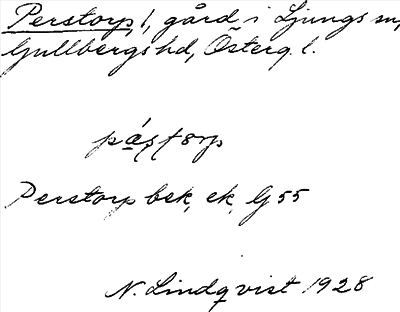 Perstorp, 1, gård i Ljungs sn,
Gullbergs hd, Österg. l.
Perstorp bek, ek, G 55
N. Lindqvist 1928